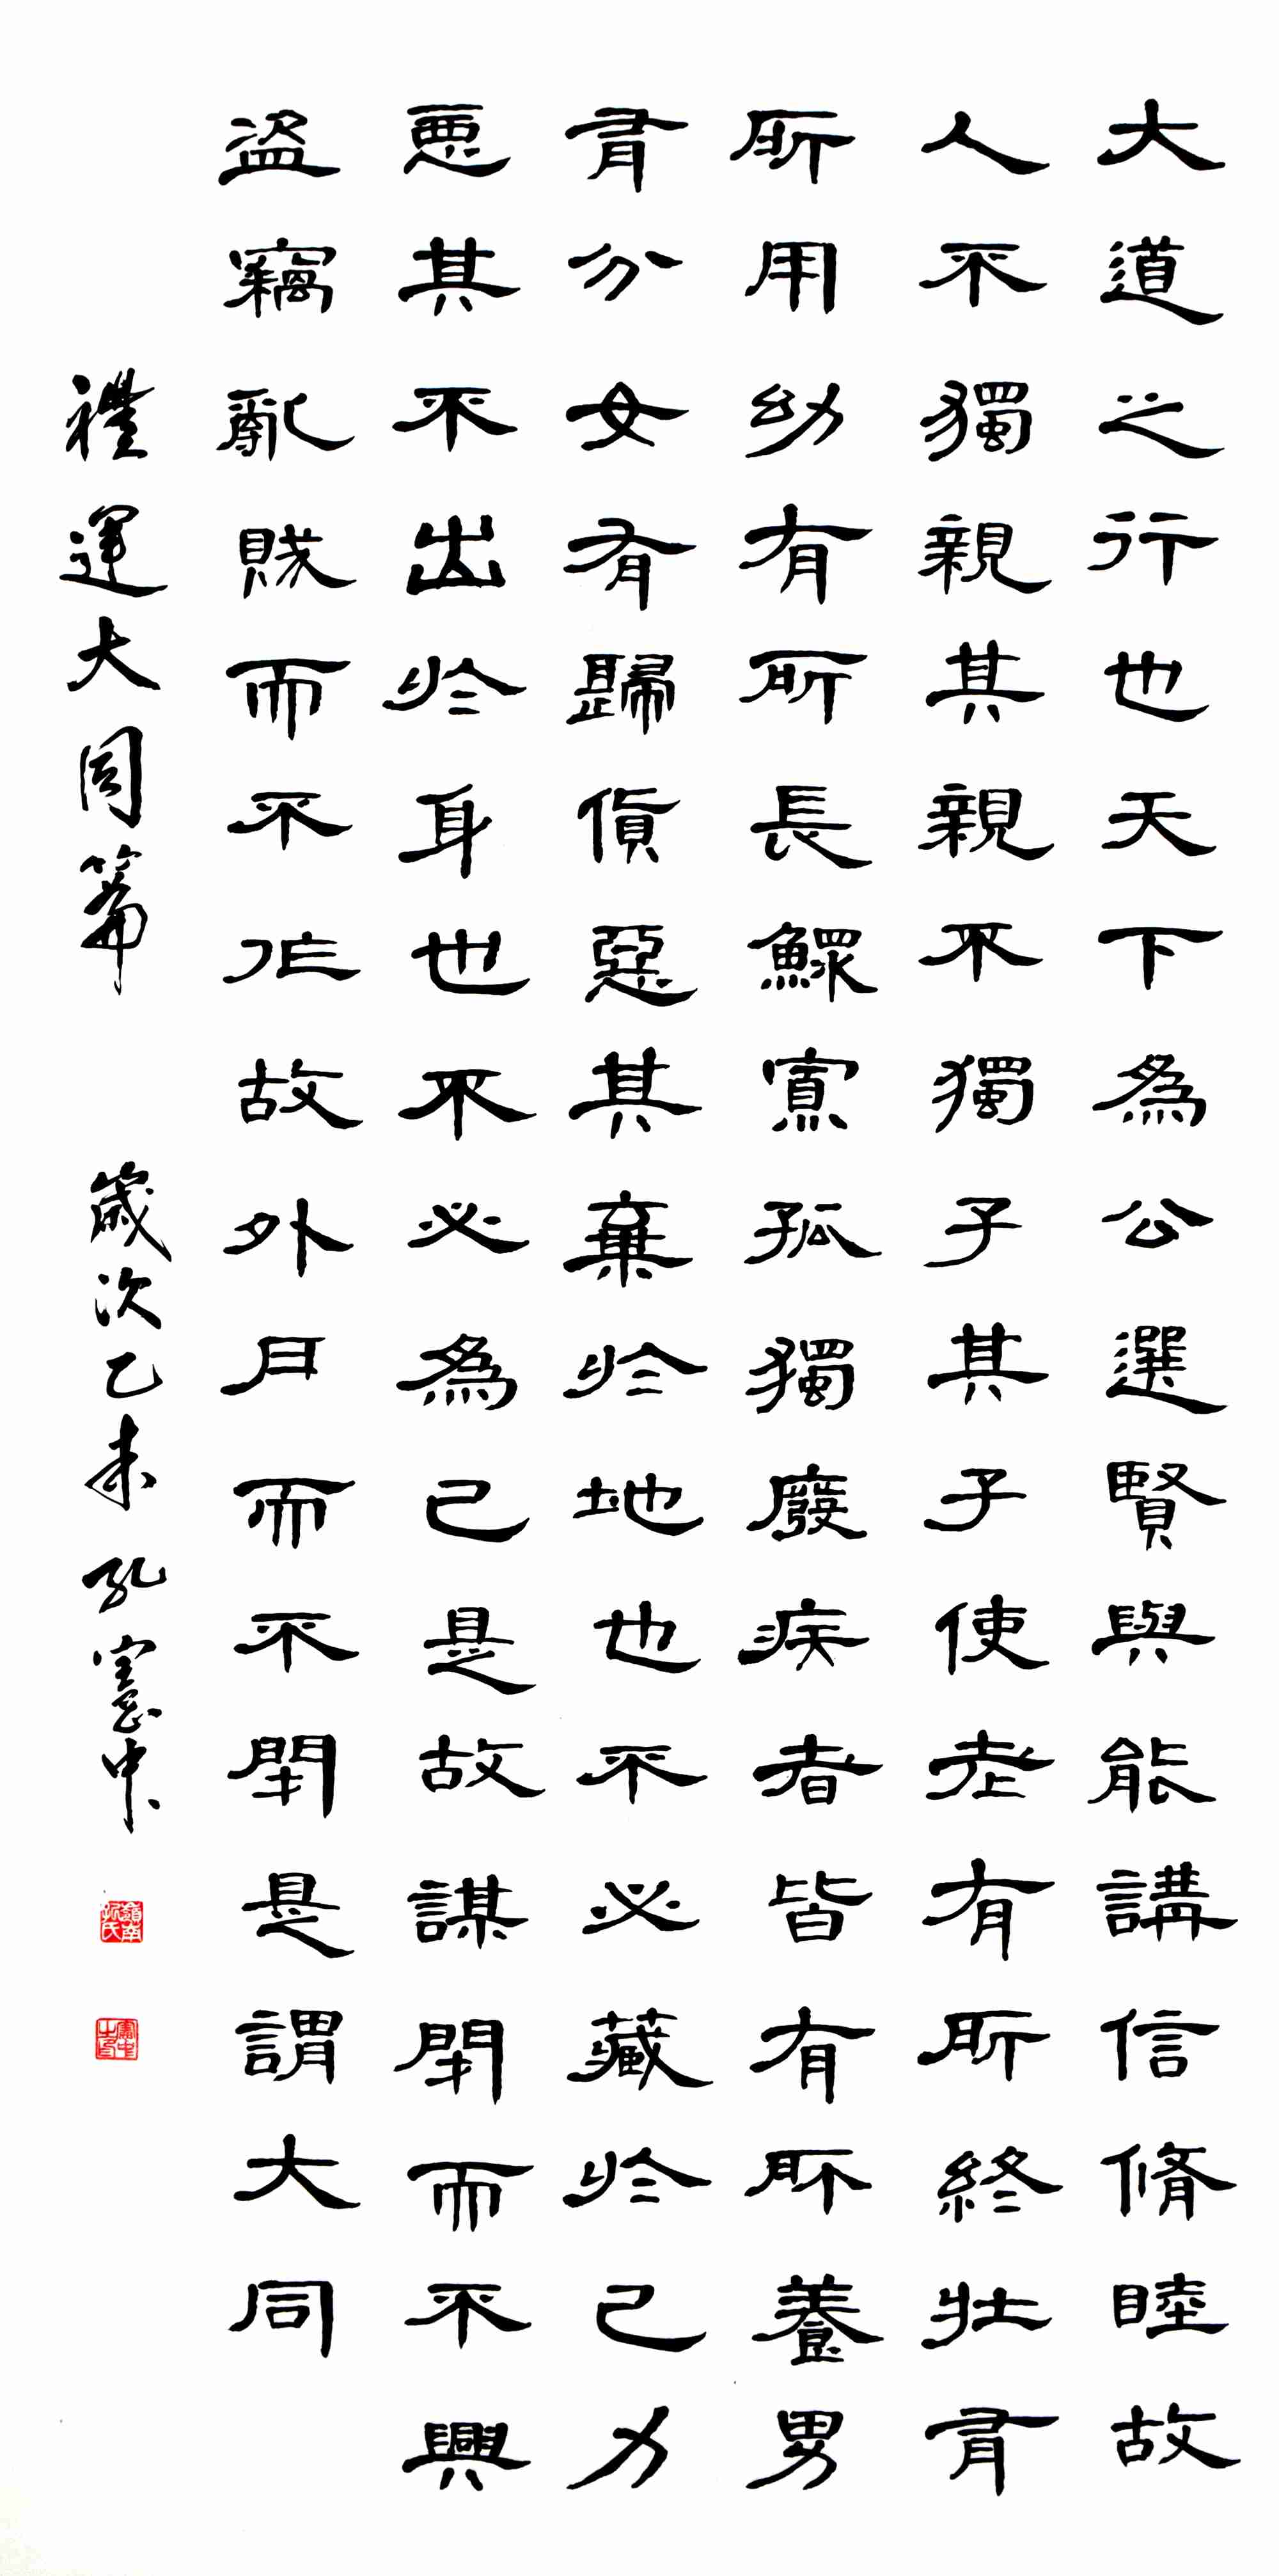 大道之行也天下為公選賢與能講信脩睦故
人不獨親其親不獨子其子使老有所終壯有
所用幼有所長鰥寡孤獨廢疾者皆有所養男
有分女有歸貨惡其棄於地也不必藏於己力
惡其不出於身也不必為己是故謀閉而不興
盜竊亂賊而不作故外戶而不閉是謂大同
禮運大同篇 歲次乙未 孔憲中
嶺南孔氏
憲中之印